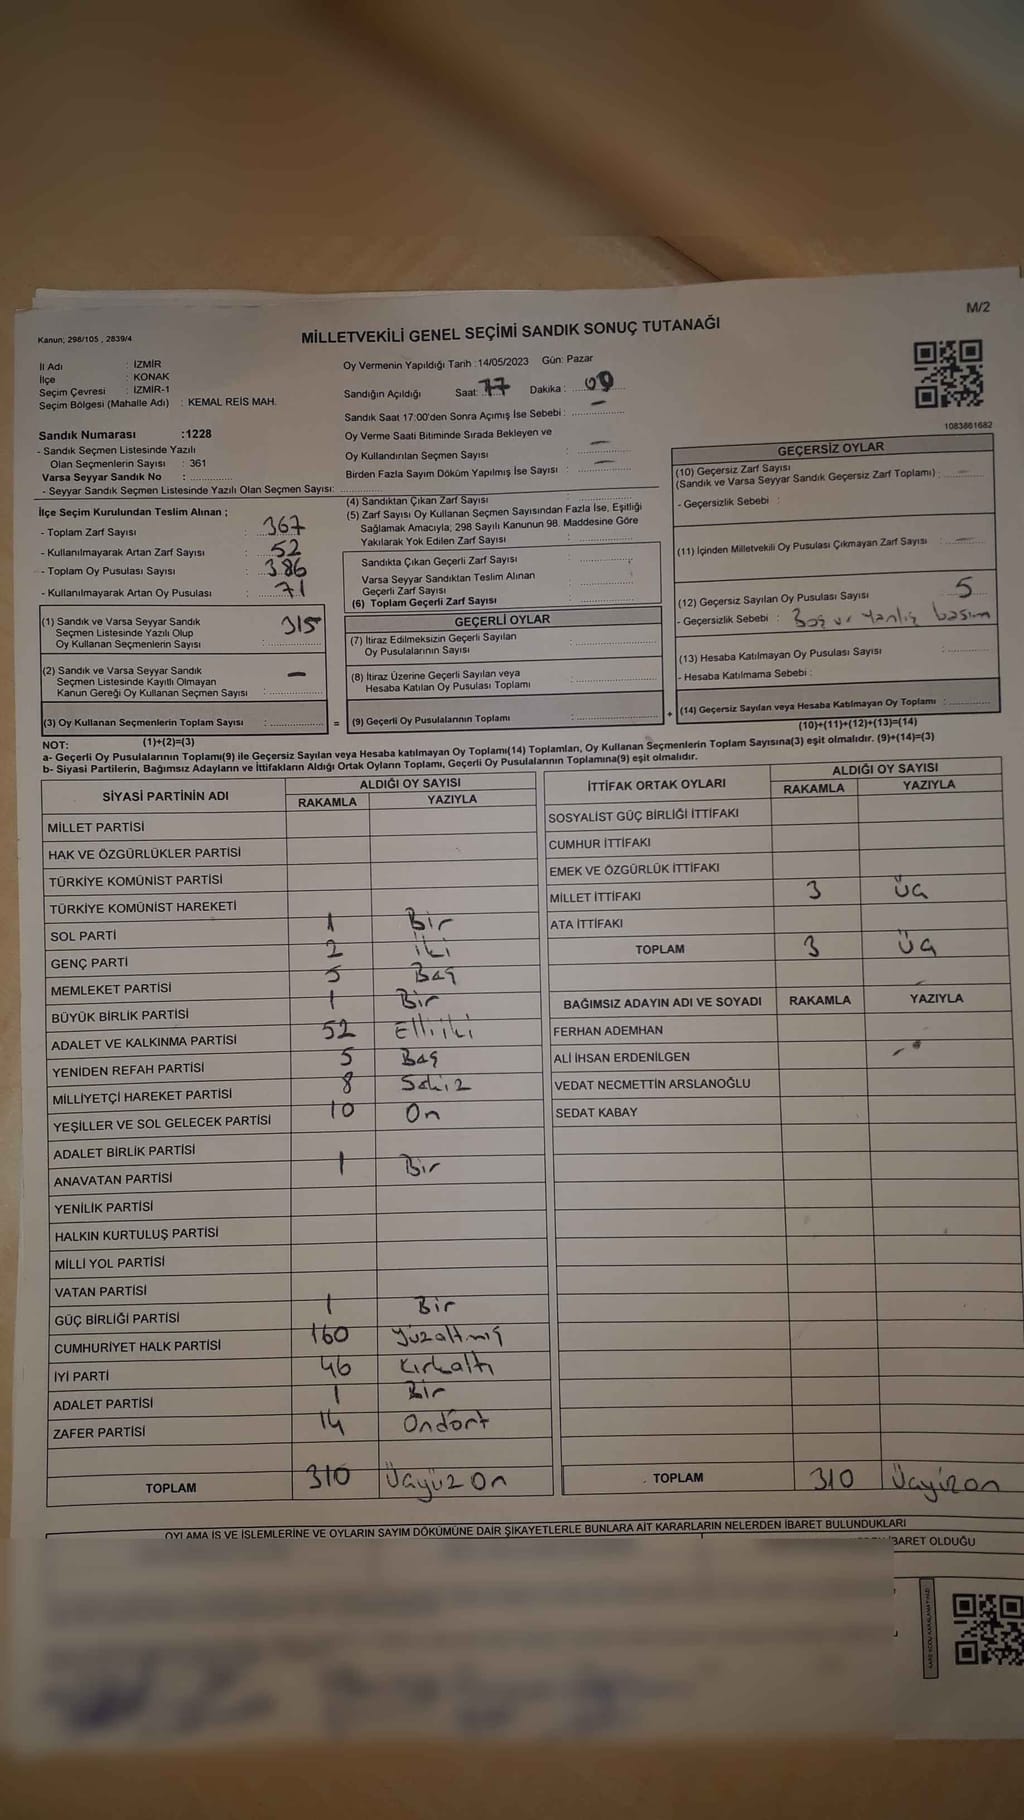 M/2
Kanun; 298/105 , 2839/4
MİLLETVEKİLİ GENEL SEÇİMİ SANDIK SONUÇ TUTANAĞI
İl Adı : İZMİR
İlçe : KONAK
Seçim Çevresi : İZMİR-1
Seçim Bölgesi (Mahalle Adı) : KEMAL REİS MAH.
Oy Vermenin Yapıldığı Tarih :14/05/2023 Gün: Pazar
Sandığın Açıldığı Saat: 17 Dakika : 00
Sandık Saat 17:00'den Sonra Açımış İse Sebebi : —
Oy Verme Saati Bitiminde Sırada Bekleyen ve
Oy Kullandırılan Seçmen Sayısı : —
Birden Fazla Sayım Döküm Yapılmış İse Sayısı : —
1083861682
Sandık Numarası :1228
- Sandık Seçmen Listesinde Yazılı
Olan Seçmenlerin Sayısı : 361
Varsa Seyyar Sandık No :
- Seyyar Sandık Seçmen Listesinde Yazılı Olan Seçmen Sayısı:
İlçe Seçim Kurulundan Teslim Alınan ;
- Toplam Zarf Sayısı : 367
- Kullanılmayarak Artan Zarf Sayısı : 52
- Toplam Oy Pusulası Sayısı : 386
- Kullanılmayarak Artan Oy Pusulası : 71
(1) Sandık ve Varsa Seyyar Sandık
Seçmen Listesinde Yazılı Olup
Oy Kullanan Seçmenlerin Sayısı : 315
(2) Sandık ve Varsa Seyyar Sandık
Seçmen Listesinde Kayıtlı Olmayan
Kanun Gereği Oy Kullanan Seçmen Sayısı : —
(3) Oy Kullanan Seçmenlerin Toplam Sayısı :
(1)+(2)=(3)
(4) Sandıktan Çıkan Zarf Sayısı :
(5) Zarf Sayısı Oy Kullanan Seçmen Sayısından Fazla İse, Eşitliği
Sağlamak Amacıyla; 298 Sayılı Kanunun 98. Maddesine Göre
Yakılarak Yok Edilen Zarf Sayısı :
Sandıkta Çıkan Geçerli Zarf Sayısı :
Varsa Seyyar Sandıktan Teslim Alınan
Geçerli Zarf Sayısı :
(6) Toplam Geçerli Zarf Sayısı :
GEÇERLİ OYLAR
(7) İtiraz Edilmeksizin Geçerli Sayılan
Oy Pusulalarının Sayısı :
(8) İtiraz Üzerine Geçerli Sayılan veya
Hesaba Katılan Oy Pusulası Toplamı :
= (9) Geçerli Oy Pusulalarının Toplamı :
GEÇERSİZ OYLAR
(10) Geçersiz Zarf Sayısı
(Sandık ve Varsa Seyyar Sandık Geçersiz Zarf Toplamı) : —
- Geçersizlik Sebebi :
(11) İçinden Milletvekili Oy Pusulası Çıkmayan Zarf Sayısı : —
(12) Geçersiz Sayılan Oy Pusulası Sayısı : 5
- Geçersizlik Sebebi : Boş ve Yanlış basım
(13) Hesaba Katılmayan Oy Pusulası Sayısı :
- Hesaba Katılmama Sebebi :
+ (14) Geçersiz Sayılan veya Hesaba Katılmayan Oy Toplamı :
(10)+(11)+(12)+(13)=(14)
NOT:
a- Geçerli Oy Pusulalarının Toplamı(9) ile Geçersiz Sayılan veya Hesaba katılmayan Oy Toplamı(14) Toplamları, Oy Kullanan Seçmenlerin Toplam Sayısına(3) eşit olmalıdır. (9)+(14)=(3)
b- Siyasi Partilerin, Bağımsız Adayların ve İttifakların Aldığı Ortak Oyların Toplamı, Geçerli Oy Pusulalarının Toplamına(9) eşit olmalıdır.
SİYASİ PARTİNİN ADI ALDIĞI OY SAYISI
RAKAMLA YAZIYLA
MİLLET PARTİSİ
HAK VE ÖZGÜRLÜKLER PARTİSİ
TÜRKİYE KOMÜNİST PARTİSİ
TÜRKİYE KOMÜNİST HAREKETİ
SOL PARTİ 1 Bir
GENÇ PARTİ 2 iki
MEMLEKET PARTİSİ 5 Beş
BÜYÜK BİRLİK PARTİSİ 1 Bir
ADALET VE KALKINMA PARTİSİ 52 Elliiki
YENİDEN REFAH PARTİSİ 5 Beş
MİLLİYETÇİ HAREKET PARTİSİ 8 Sekiz
YEŞİLLER VE SOL GELECEK PARTİSİ 10 On
ADALET BİRLİK PARTİSİ
ANAVATAN PARTİSİ 1 Bir
YENİLİK PARTİSİ
HALKIN KURTULUŞ PARTİSİ
MİLLİ YOL PARTİSİ
VATAN PARTİSİ
GÜÇ BİRLİĞİ PARTİSİ 1 Bir
CUMHURİYET HALK PARTİSİ 160 Yüzaltmış
İYİ PARTİ 46 Kırkaltı
ADALET PARTİSİ 1 Bir
ZAFER PARTİSİ 14 Ondört
TOPLAM 310 Üçyüz On
İTTİFAK ORTAK OYLARI ALDIĞI OY SAYISI
RAKAMLA YAZIYLA
SOSYALİST GÜÇ BİRLİĞİ İTTİFAKI
CUMHUR İTTİFAKI
EMEK VE ÖZGÜRLÜK İTTİFAKI
MİLLET İTTİFAKI 3 Üç
ATA İTTİFAKI
TOPLAM 3 Üç
BAĞIMSIZ ADAYIN ADI VE SOYADI RAKAMLA YAZIYLA
FERHAN ADEMHAN
ALİ İHSAN ERDENİLGEN
VEDAT NECMETTİN ARSLANOĞLU
SEDAT KABAY
TOPLAM 310 Üçyüzon
OYLAMA İŞ VE İŞLEMLERİNE VE OYLARIN SAYIM DÖKÜMÜNE DAİR ŞİKAYETLERLE BUNLARA AİT KARARLARIN NELERDEN İBARET BULUNDUKLARI
İBARET OLDUĞU